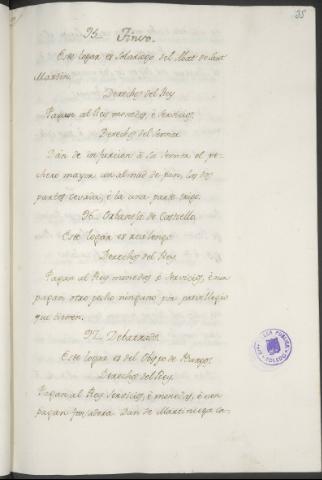 35
95. Finso.
Este logar es Solariego del Abat de Sant
Martin.
Derechos del Rey
Pagan al Rey monedas, è Servicios.
Derechos del Sennor
Dan de infurcion à su Sennor el pe-
chero mayor un almud de pan, los dos
partes cevada, è la una parte trigo.
96. Orbaneja de Castiella
Este logar es realengo
Derechos del Rey
Pagan al Rey monedas è Servicios, è non
pagan otro pecho ninguno por previllegio
que tienen.
97.
Este logar es del Obispo de Burgos.
Derechos del Rey.
Pagan al Rey Servicios, è monedas, è non
pagan fonsadera Dan de Martiniega ca-
PUBLICA
TOLEDO